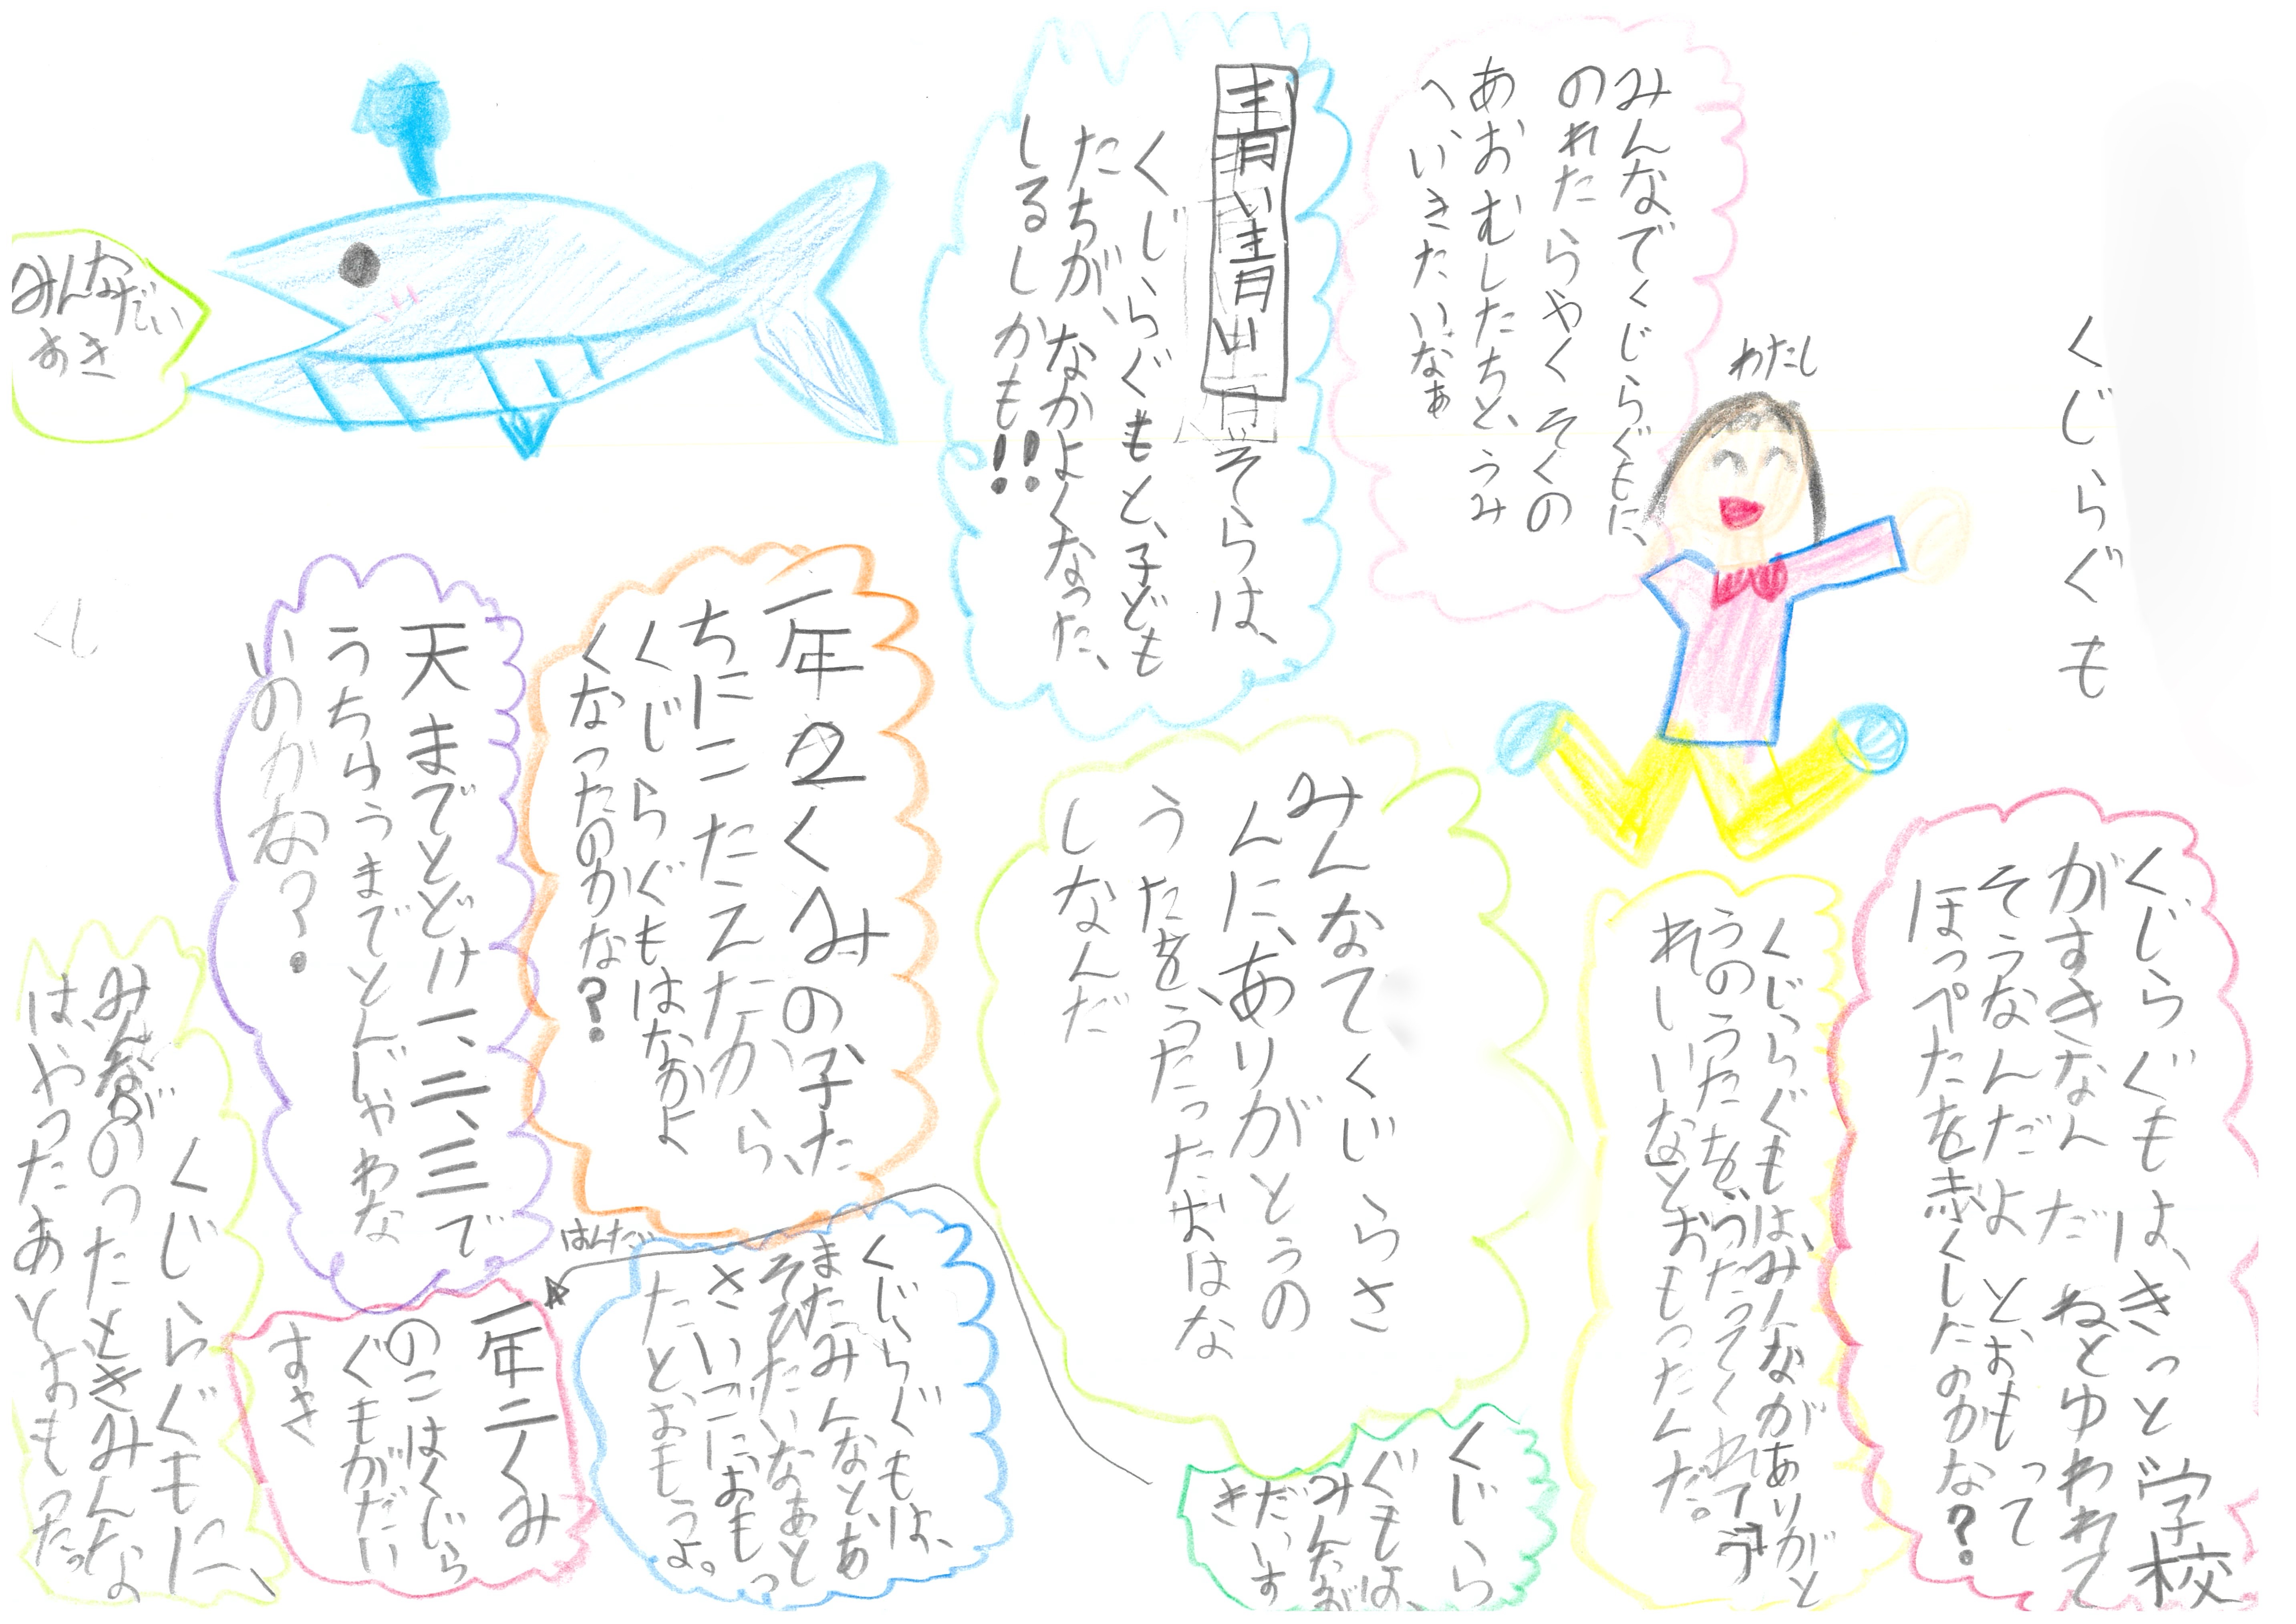 くじらぐも
わたし
くじらぐもは、きっと学校
がすきなんだねとゆわれて
そうなんだよとおもって
ほっペたを赤くしたのかな？
みんなでくじらぐもに、
のれたらやくそくの
あおむしたちと、うみ
へいきたいなぁ
くじらぐもはみんながありがと
うのうたを、うたってくれて、う
れしいなとおもったんだ。
青い青い
そらは、
くじらぐもと、子ども
たちが、なかよくなった、
しるしかも!!
みんなてくじらさ
んに、ありがとうの
うたを、うたったおはな
しなんだ
くじら
ぐもは、
みんなが
だいす
き
一年2くみの子た
ちにこたえたから、
くじらぐもはなかよ
くなったのかな？
くじらぐもは、
またみんなと、あ
そびたいなあと
さいごにおもっ
たと、おもうよ。
はんたい
天までとどけ一、二、三で
うちゅうまでとんじゃわな
いのかな？
一年二くみ
のこはくじら
ぐもがだい
すき
みんなだい
すき
くじらぐもに、
みんながのったときみんな
は、やったあとおもった